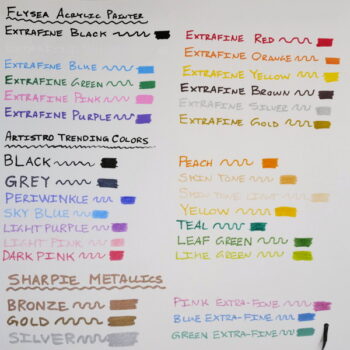 Elysea Acrylic Painter
Extrafine Black
Extrafine Blue
Extrafine Green
Extrafine Pink
Extrafine Purple
Extrafine Red
Extrafine Orange
Extrafine Yellow
Extrafine Brown
Extrafine Silver
Extrafine Gold
Artistro Trending Colors
Black
Grey
Periwinkle
Sky Blue
Light Purple
Light Pink
Dark Pink
Peach
Skin Tone
Skin Tone Light
Yellow
Teal
Leaf Green
Lime Green
Sharpie Metallics
Bronze
Gold
Silver
Pink Extra-Fine
Blue Extra-Fine
Green Extra-Fine